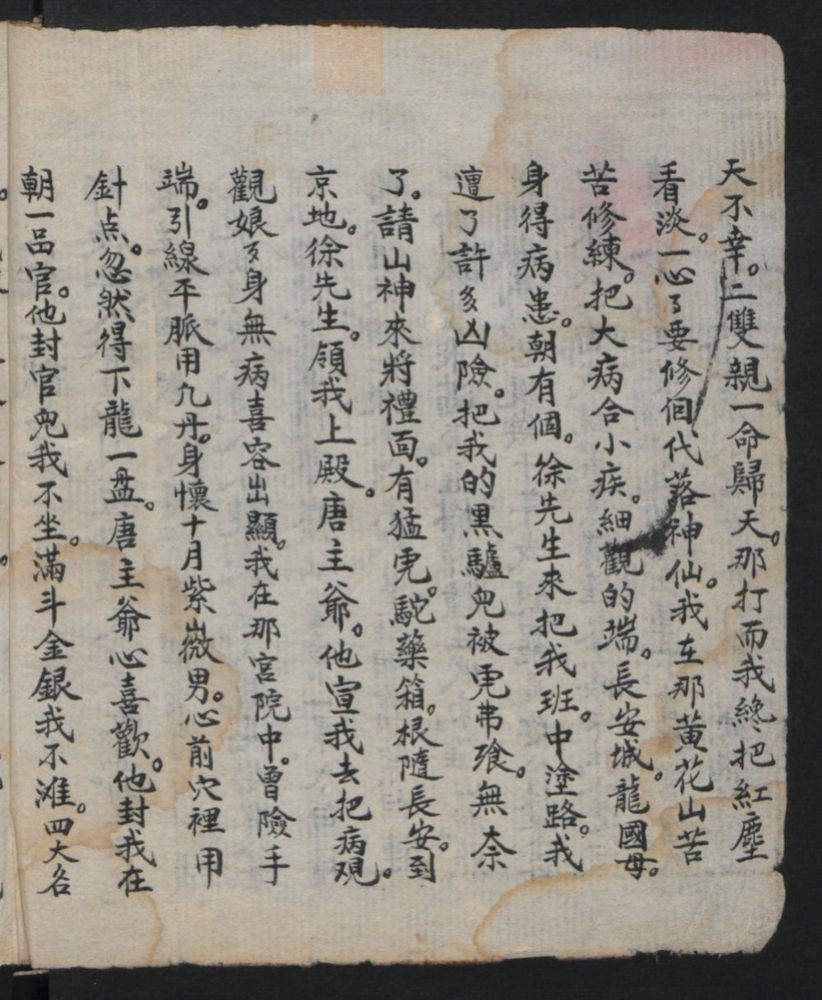 天不幸。二雙親一命歸天。那打而我終把紅塵
看淡。一心了要修個代落神仙。我在那黄花山苦
苦修練。把大病合小疾。細觀的端。長安城。龍國母。
身得病患。朝有個。徐先生來把我班。中塗路。我
遭了許多凶險。把我的黑驢兒被虎弗飱。無奈
了。請山神來將禮面。有猛虎。駝藥箱。根隨長安。到
京地。徐先生。領我上殿。唐主爺。他宣我去把病观。
觀娘歹身無病喜容出顯。我在那宮院中。曾險手
端。引線平脈用九丹。身懷十月紫微男。心前穴裡用
針点。忽然得下龍一盘。唐主爺心喜歡。他封我在
朝一品官。他封官兒我不坐。滿斗金銀我不滩。四大名